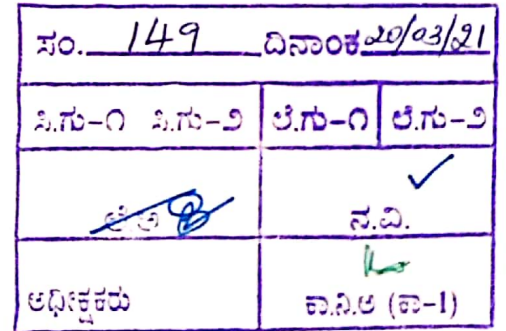 ಸಂ. 149 ದಿನಾಂಕ 20/03/21
ಸಿ.ಗು-೧ ಸಿ.ಗು-೨ ಲೆ.ಗು-೧ ಲೆ.ಗು-೨
ಲೆ.ಅ ನ.ವಿ.
ಅಧೀಕ್ಷಕರು ಕಾ.ನಿ.ಅ (ಕಾ-1)